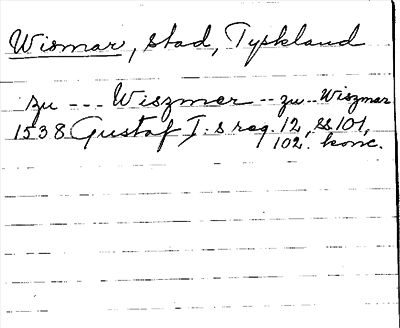 Wismar, stad, Tyskland
zu --- Wiszmer -- zu -- Wiszmar
1538 Gustaf I:s reg. 12, ss 101,
102. konc.